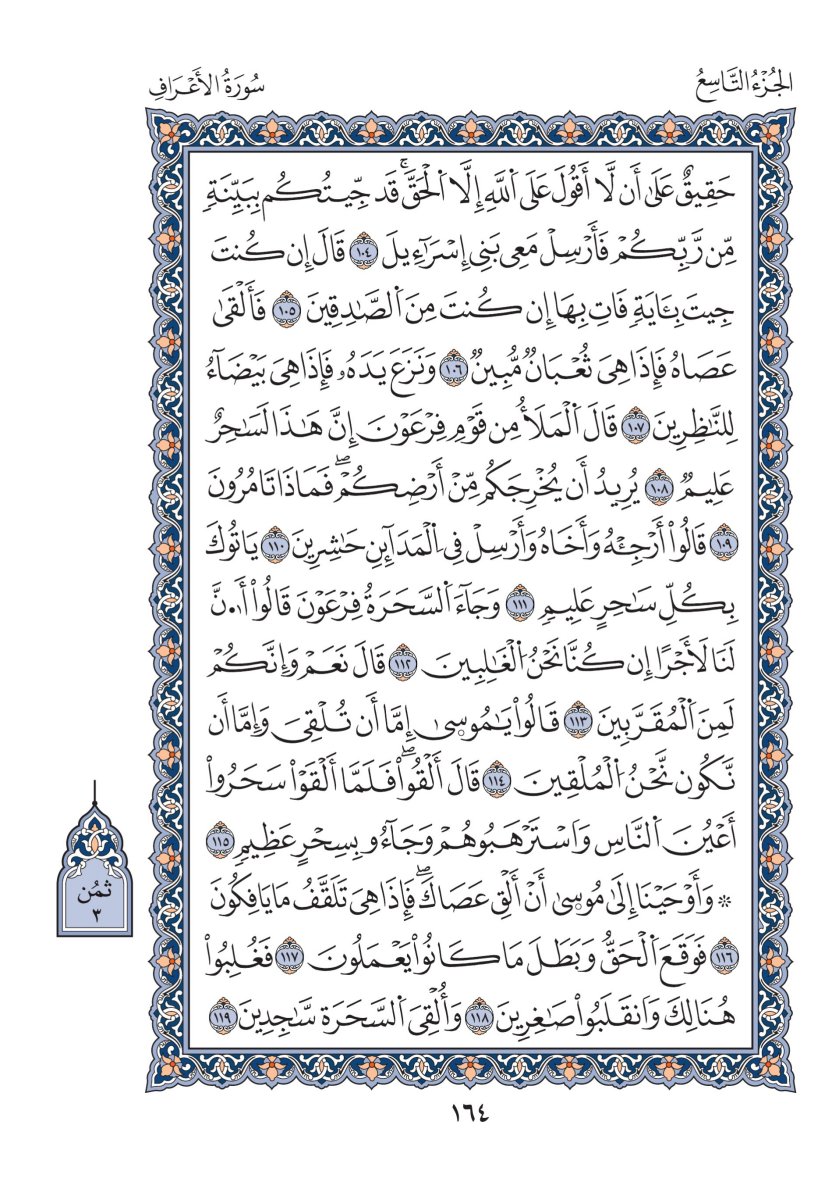 الجُزْءُ التَّاسِعُ
سُورَةُ الأَعْرَافِ
حَقِيقٌ عَلَىٰ أَن لَّا أَقُولَ عَلَى ٱللَّهِ إِلَّا ٱلْحَقَّۚ قَد جِّيتُكُم بِبَيِّنَةٖ
مِّن رَّبِّكُمْ فَأَرْسِلْ مَعِى بَنِى إِسْرَآءِيلَ ١٠٤ قَالَ إِن كُنتَ
جِيتَ بِـَٔايَةٖ فَاتِ بِهَا إِن كُنتَ مِنَ ٱلصَّٰدِقِينَ ١٠٥ فَأَلْقَىٰ
عَصَاهُ فَإِذَا هِىَ ثُعْبَانٌ مُّبِينٌ ١٠٦ وَنَزَعَ يَدَهُۥ فَإِذَا هِىَ بَيْضَآءُ
لِلنَّٰظِرِينَ ١٠٧ قَالَ ٱلْمَلَأُ مِن قَوْمِ فِرْعَوْنَ إِنَّ هَٰذَا لَسَٰحِرٌ
عَلِيمٌ ١٠٨ يُرِيدُ أَن يُخْرِجَكُم مِّنْ أَرْضِكُمْۖ فَمَاذَا تَامُرُونَ
١٠٩ قَالُواْ أَرْجِئْهُ وَأَخَاهُ وَأَرْسِلْ فِى ٱلْمَدَآئِنِ حَٰشِرِينَ ١١٠ يَاتُوكَ
بِكُلِّ سَٰحِرٍ عَلِيمٖ ١١١ وَجَآءَ ٱلسَّحَرَةُ فِرْعَوْنَ قَالُواْ أَا۬نَّ
لَنَا لَأَجْرًا إِن كُنَّا نَحْنُ ٱلْغَٰلِبِينَ ١١٢ قَالَ نَعَمْ وَإِنَّكُمْ
لَمِنَ ٱلْمُقَرَّبِينَ ١١٣ قَالُواْ يَٰمُوسِىٰ إِمَّا أَن تُلْقِىَ وَإِمَّا أَن
نَّكُون نَّحْنُ ٱلْمُلْقِينَ ١١٤ قَالَ أَلْقُواْۖ فَلَمَّا أَلْقَوْاْ سَحَرُواْ
أَعْيُنَ ٱلنَّاسِ وَٱسْتَرْهَبُوهُمْ وَجَآءُو بِسِحْرٍ عَظِيمٖ ١١٥
۞ وَأَوْحَيْنَا إِلَىٰ مُوسِىٰ أَنْ أَلْقِ عَصَاكَۖ فَإِذَا هِىَ تَلَقَّفُ مَا يَافِكُونَ
١١٦ فَوَقَعَ ٱلْحَقُّ وَبَطَلَ مَا كَانُواْ يَعْمَلُونَ ١١٧ فَغُلِبُواْ
هُنَالِكَ وَٱنقَلَبُواْ صَٰغِرِينَ ١١٨ وَأُلْقِىَ ٱلسَّحَرَة سَّٰجِدِينَ ١١٩
ثمُن
٣
١٦٤